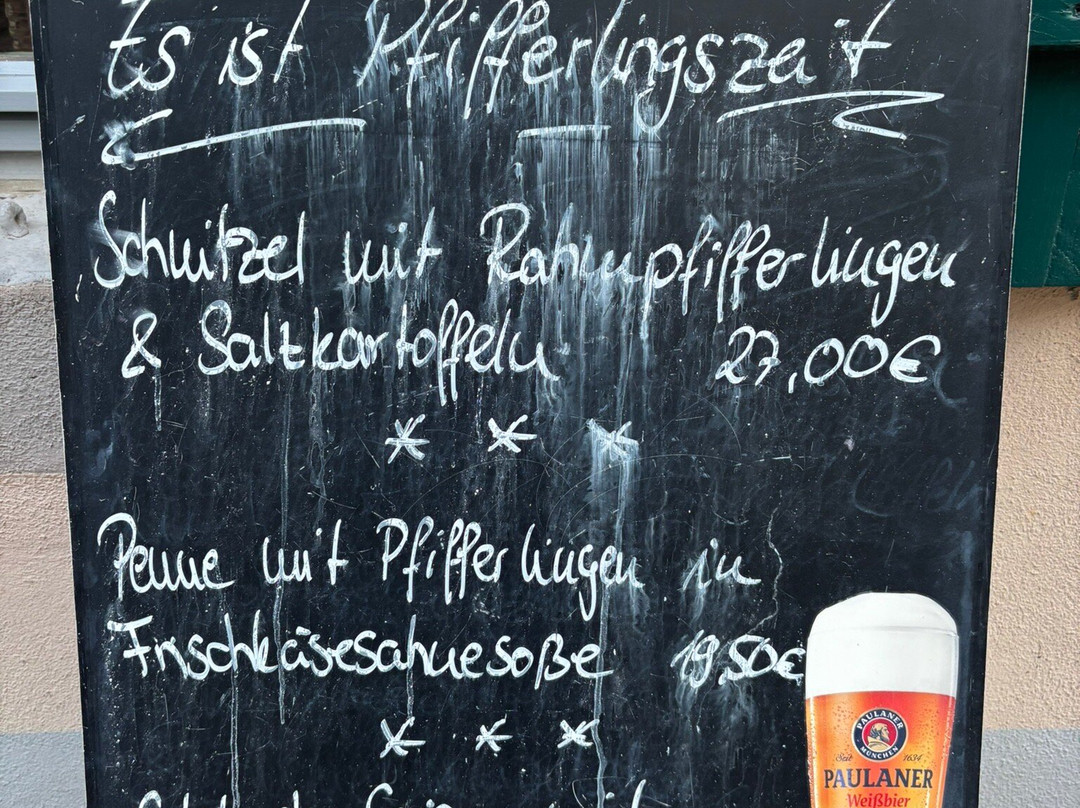 Es ist Pfifferlingszeit
Schnitzel mit Rahmpfifferlingen
& Saltzkartoffeln 27,00€
* * *
Penne mit Pfifferlingen in
Frischkäsesahnesoße 19,50€
* * *
PAULANER
MÜNCHEN
Seit 1634
PAULANER
Weißbier